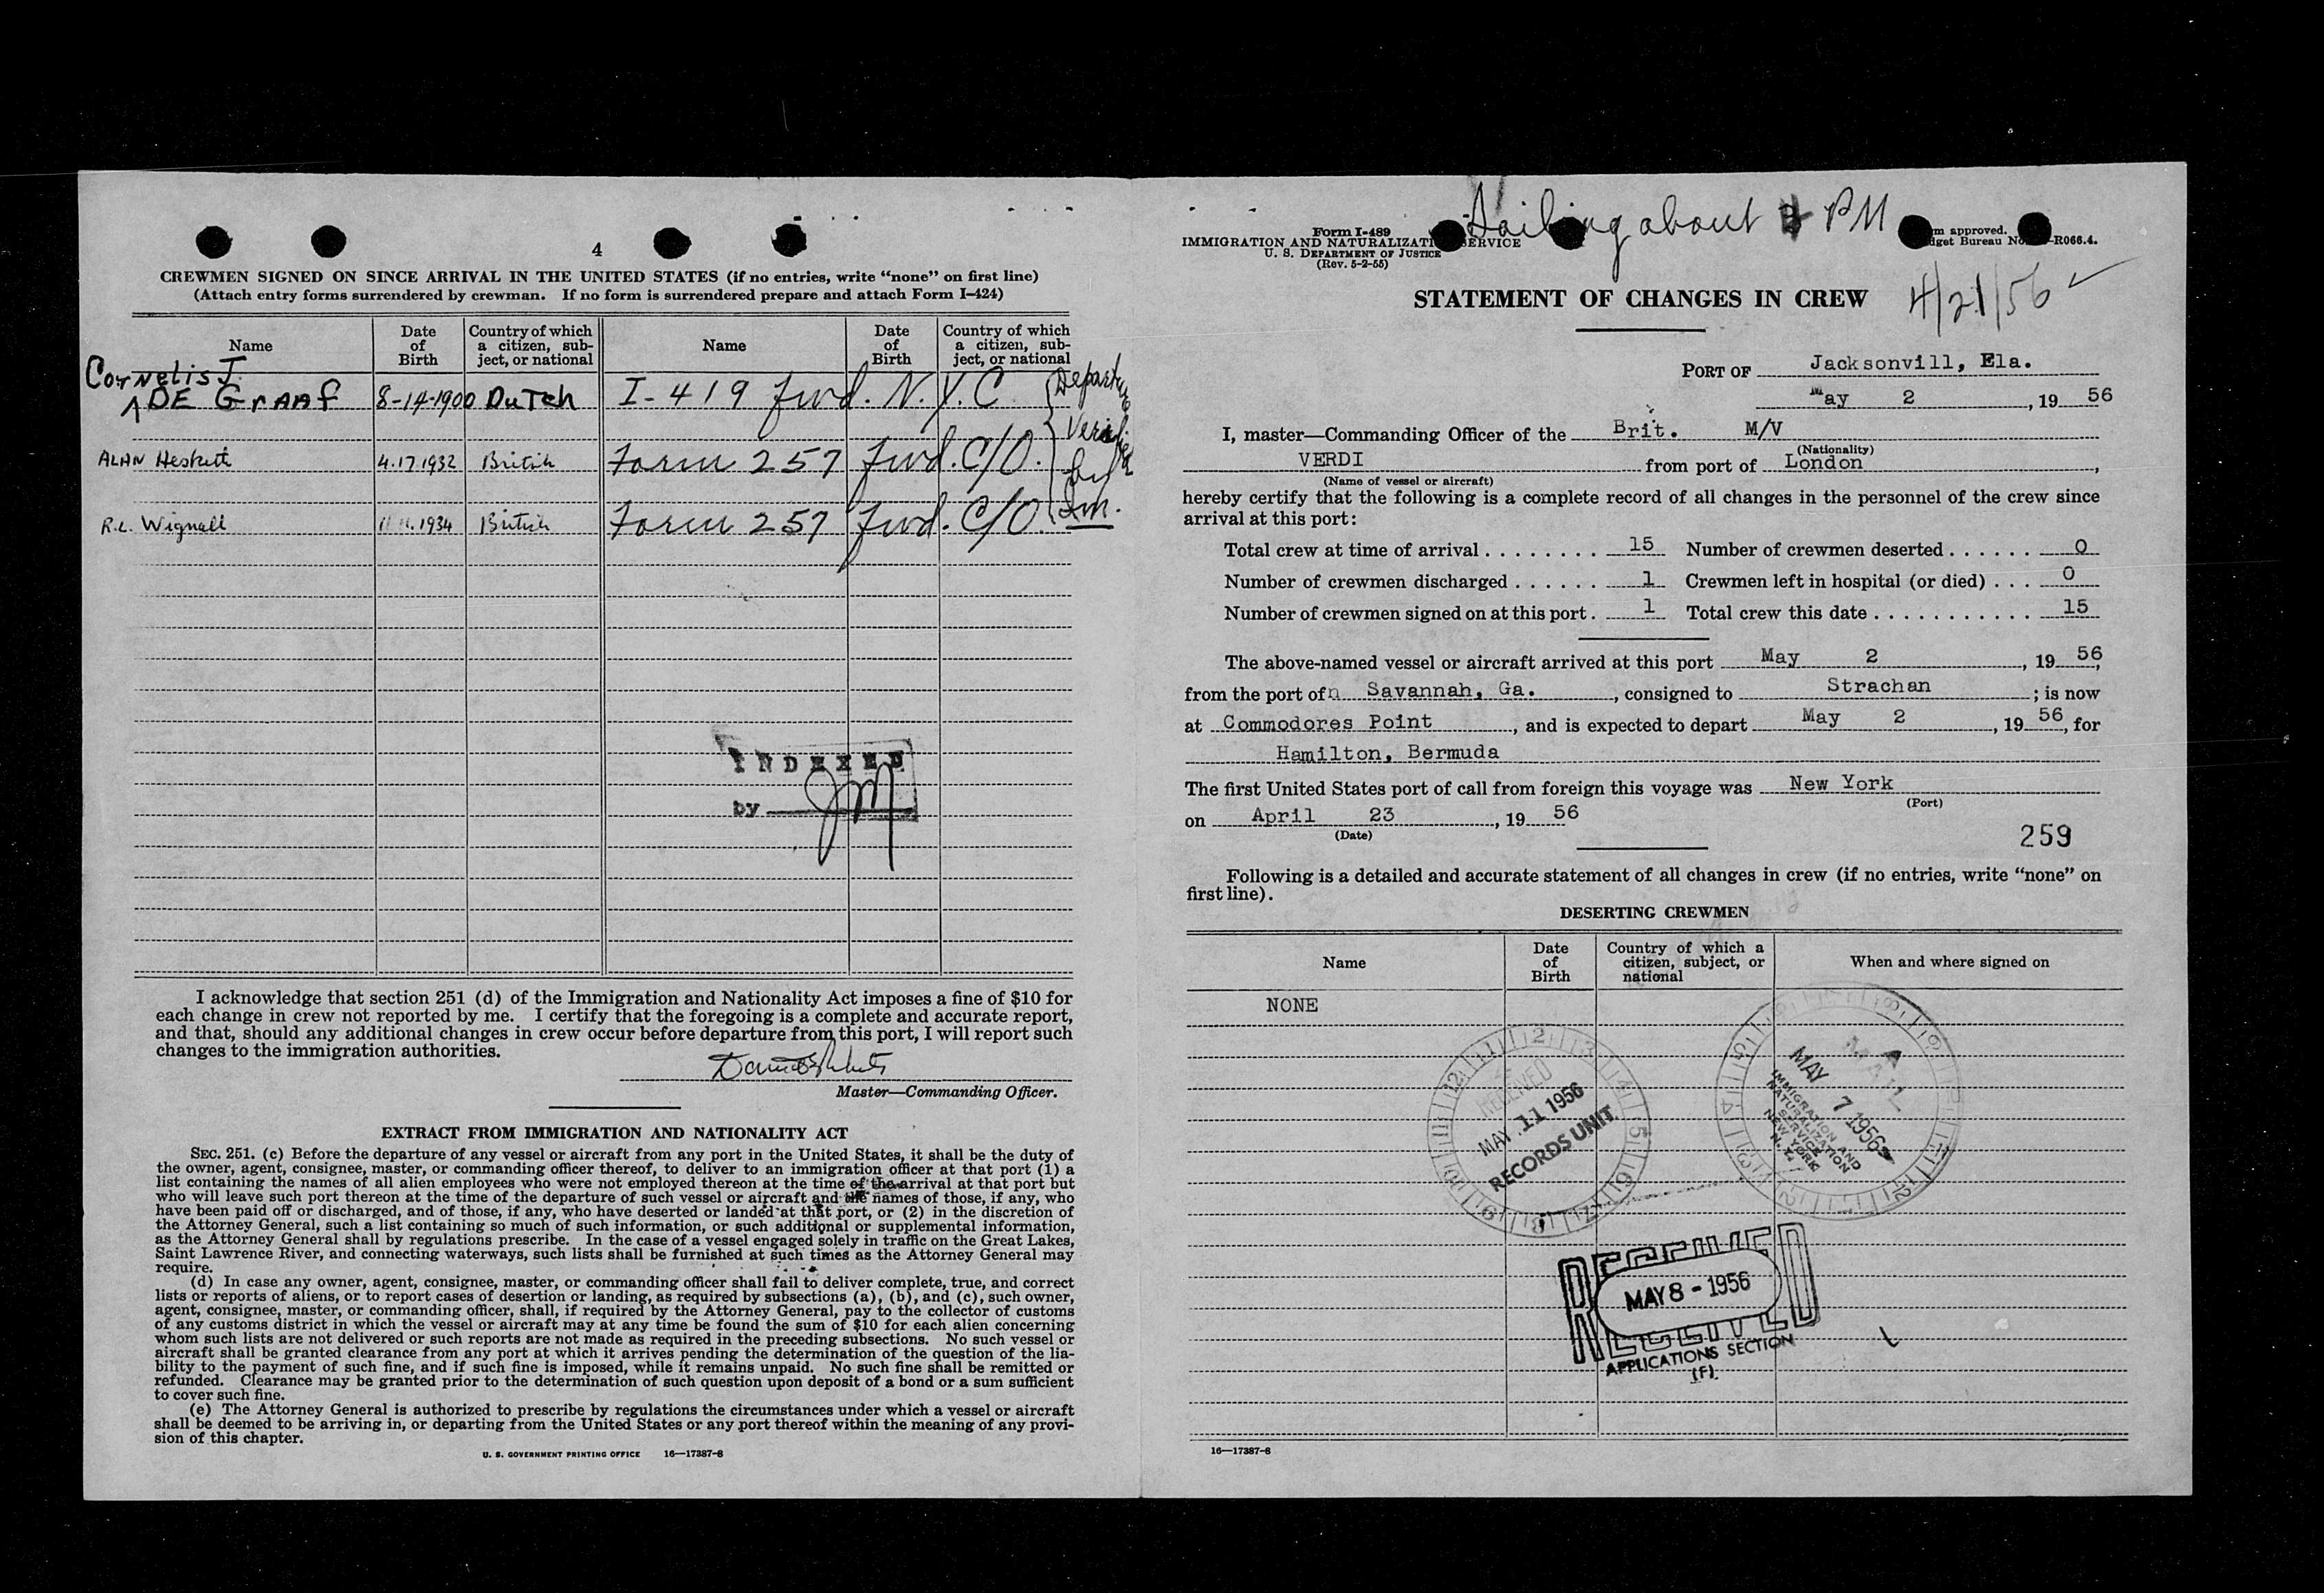 4
CREWMEN SIGNED ON SINCE ARRIVAL IN THE UNITED STATES (if no entries, write “none” on first line)
(Attach entry forms surrendered by crewman. If no form is surrendered prepare and attach Form I-424)
Name Date of Birth Country of which a citizen, subject, or national Name Date of Birth Country of which a citizen, sub-ject, or national
Cornelis J.
DE GrAAf 8-14-1900 DuTch I-419 fwd. N.Y.C.
ALAN Hesketh 4.17.1932 British Form 257 fwd. C/O.
R.L. Wignall 11.11.1934 British Form 257 fwd. C/O.
Departure
Verified
by
INDEXED
by JM
I acknowledge that section 251 (d) of the Immigration and Nationality Act imposes a fine of $10 for
each change in crew not reported by me. I certify that the foregoing is a complete and accurate report,
and that, should any additional changes in crew occur before departure from this port, I will report such
changes to the immigration authorities.
Master—Commanding Officer.
EXTRACT FROM IMMIGRATION AND NATIONALITY ACT
SEC. 251. (c) Before the departure of any vessel or aircraft from any port in the United States, it shall be the duty of
the owner, agent, consignee, master, or commanding officer thereof, to deliver to an immigration officer at that port (1) a
list containing the names of all alien employees who were not employed thereon at the time of the arrival at that port but
who will leave such port thereon at the time of the departure of such vessel or aircraft and the names of those, if any, who
have been paid off or discharged, and of those, if any, who have deserted or landed at that port, or (2) in the discretion of
the Attorney General, such a list containing so much of such information, or such additional or supplemental information,
as the Attorney General shall by regulations prescribe. In the case of a vessel engaged solely in traffic on the Great Lakes,
Saint Lawrence River, and connecting waterways, such lists shall be furnished at such times as the Attorney General may
require.
(d) In case any owner, agent, consignee, master, or commanding officer shall fail to deliver complete, true, and correct
lists or reports of aliens, or to report cases of desertion or landing, as required by subsections (a), (b), and (c), such owner,
agent, consignee, master, or commanding officer, shall, if required by the Attorney General, pay to the collector of customs
of any customs district in which the vessel or aircraft may at any time be found the sum of $10 for each alien concerning
whom such lists are not delivered or such reports are not made as required in the preceding subsections. No such vessel or
aircraft shall be granted clearance from any port at which it arrives pending the determination of the question of the lia-
bility to the payment of such fine, and if such fine is imposed, while it remains unpaid. No such fine shall be remitted or
refunded. Clearance may be granted prior to the determination of such question upon deposit of a bond or a sum sufficient
to cover such fine.
(e) The Attorney General is authorized to prescribe by regulations the circumstances under which a vessel or aircraft
shall be deemed to be arriving in, or departing from the United States or any port thereof within the meaning of any provi-
sion of this chapter.
U. S. GOVERNMENT PRINTING OFFICE 16—17387-8
Sailing about 3 PM
Form I-489
IMMIGRATION AND NATURALIZATI SERVICE
U. S. DEPARTMENT OF JUSTICE
(Rev. 5-2-55)
m approved.
dget Bureau No -R066.4.
STATEMENT OF CHANGES IN CREW
4/21/56
PORT OF Jacksonvill, Ela.
May 2, 1956
I, master—Commanding Officer of the Brit. M/V
(Nationality)
VERDI from port of London,
(Name of vessel or aircraft)
hereby certify that the following is a complete record of all changes in the personnel of the crew since
arrival at this port:
Total crew at time of arrival . . . . . . . . 15 Number of crewmen deserted . . . . . . 0
Number of crewmen discharged . . . . . . 1 Crewmen left in hospital (or died) . . . 0
Number of crewmen signed on at this port . 1 Total crew this date . . . . . . . . . . . 15
The above-named vessel or aircraft arrived at this port May 2, 1956,
from the port of n Savannah, Ga., consigned to Strachan; is now
at Commodores Point, and is expected to depart May 2, 1956, for
Hamilton, Bermuda
The first United States port of call from foreign this voyage was New York
(Port)
on April 23, 1956
(Date)
259
Following is a detailed and accurate statement of all changes in crew (if no entries, write “none” on
first line).
DESERTING CREWMEN
Name Date of Birth Country of which a citizen, subject, or national When and where signed on
NONE
RECEIVED
MAY 11 1956
RECORDS UNIT
MAIL
MAY 7 1956
IMMIGRATION AND
NATURALIZATION
SERVICE
NEW YORK
N. Y.
RECEIVED
MAY 8 - 1956
RECEIVED
APPLICATIONS SECTION
(F)
16—17387-8